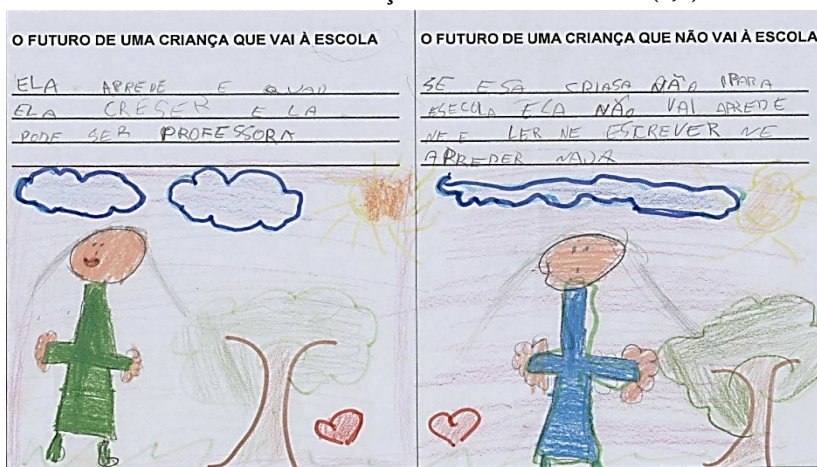 O FUTURO DE UMA CRIANÇA QUE VAI À ESCOLA
ELA APREDE E QUAD
ELA CRESER E LA
PODE SER PROFESSORA
O FUTURO DE UMA CRIANÇA QUE NÃO VAI À ESCOLA
SE ESA CRIASA NÃO
ELA NÃO VAI APREDE
LER NE ESCREVER NE
NADA